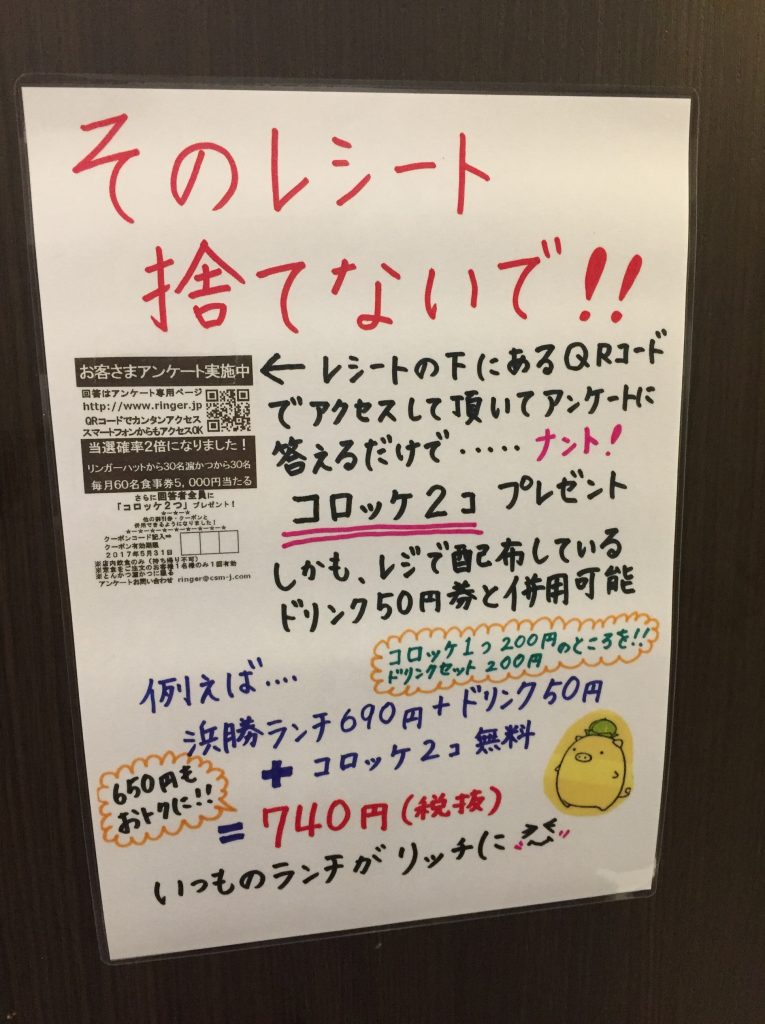 そのレシート
捨てないで!!
お客さまアンケート実施中
回答はアンケート専用ページ
http://www.ringer.jp
QRコードでカンタンアクセス
スマートフォンからもアクセスOK
当選確率2倍になりました！
リンガーハットから30名濵かつから30名
毎月60名食事券5,000円当たる
さらに回答者全員に
「コロッケ2つ」プレゼント！
他の割引券・クーポンと
併用できるようになりました！
クーポンコード記入⇒
クーポン有効期限
2017年5月31日
※店内飲食のみ（持ち帰り不可）
※定食をご注文のお客様1名様のみ1回有効
※とんかつ濵かつに限る
アンケートお問い合わせ ringer@csm-j.com
← レシートの下にあるQRコード
でアクセスして頂いてアンケートに
答えるだけで‥‥‥ナント！
コロッケ2コ プレゼント
しかも、レジで配布している
ドリンク50円券と併用可能
コロッケ1つ200円のところを!!
ドリンクセット200円
例えば‥‥
浜勝ランチ690円+ドリンク50円
+コロッケ2コ無料
650円も
おトクに!!
=740円(税抜)
いつものランチがリッチに